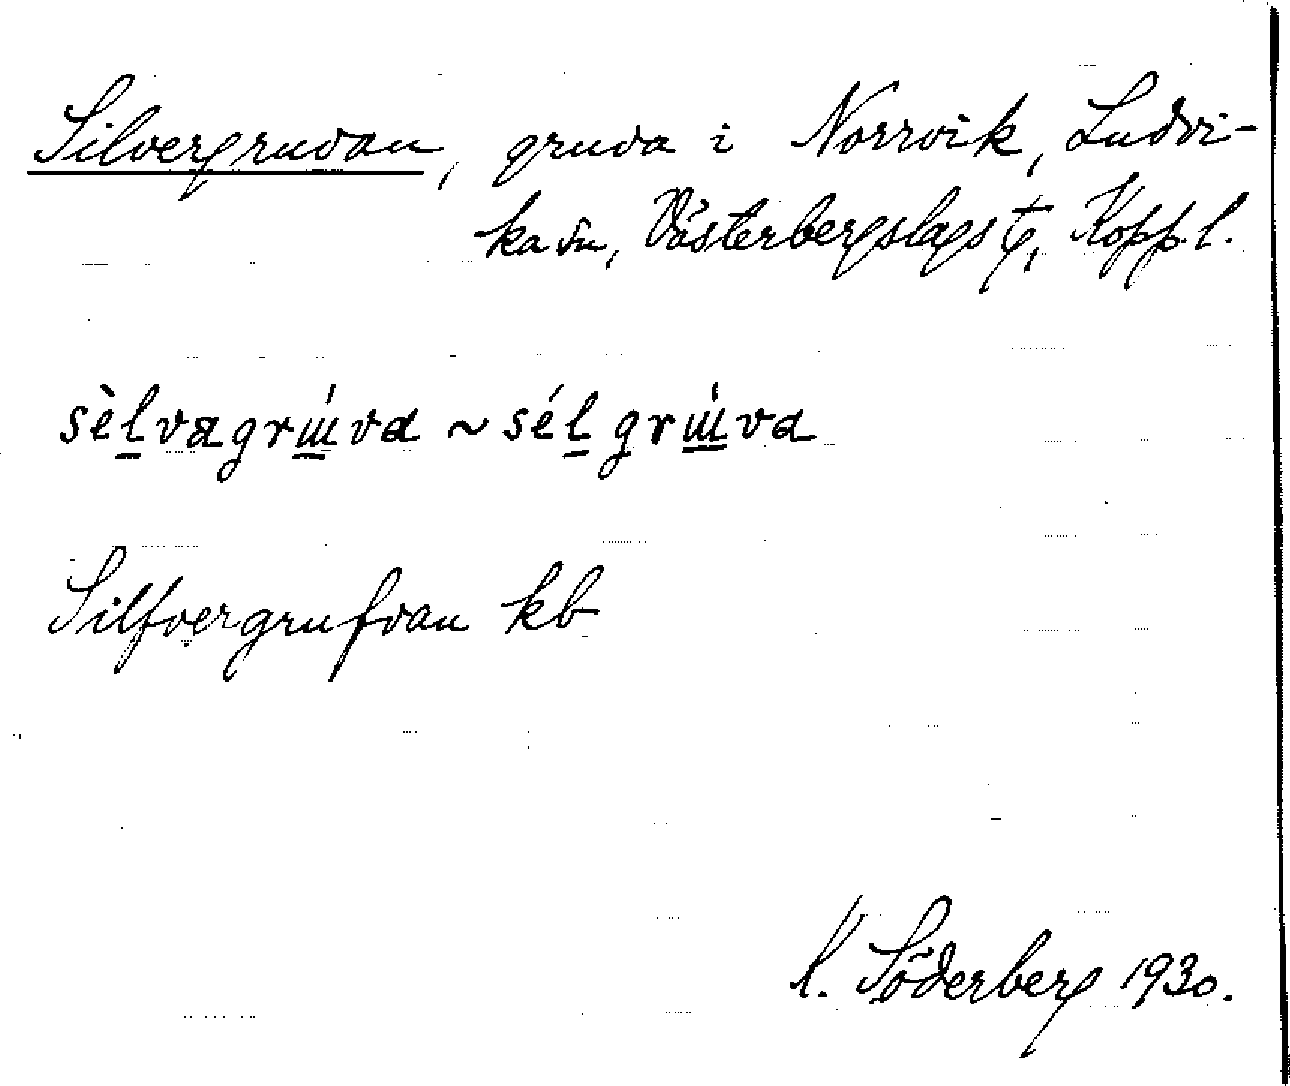 Silvergruvan, gruva i Norrvik, Ludvi-
ka sn, Västerbergslags t, Kopp. l.
sèl̲vagrɯ̲́va ~ sél̲ grɯ̲́va
Silfvergrufvan kb
K. Söderberg 1930.